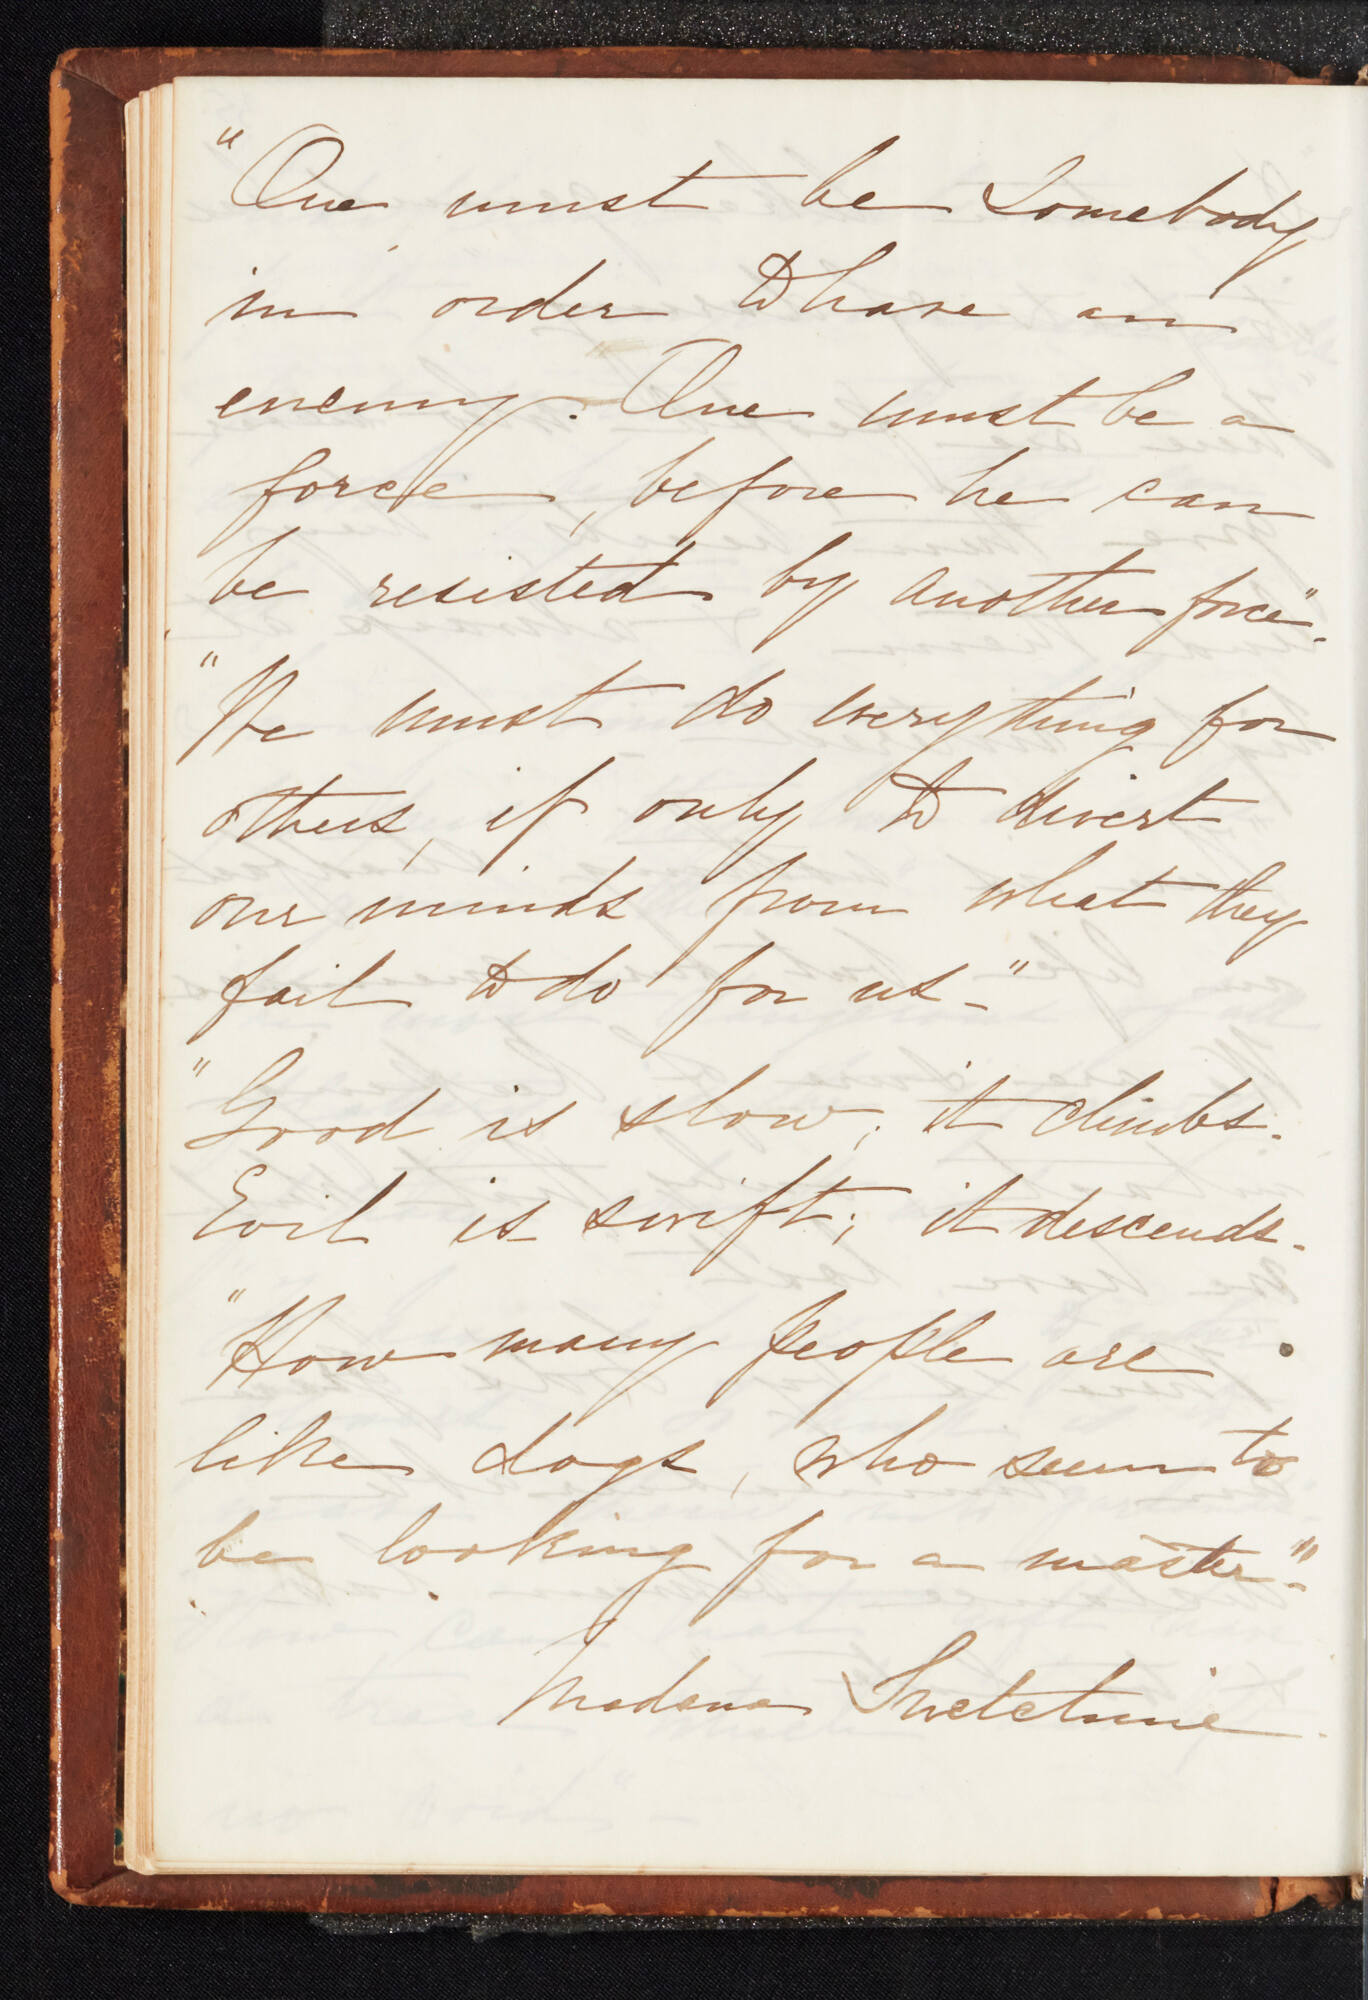 "One must be Somebody
in order to have an
enemy. One must be a
force, before he can
be resisted by another force".
"We must do everything for
others, if only to divert
our minds from what they
fail to do for us."
"Good is slow; it climbs.
Evil is swift; it descends.
"How many people are
like dogs, who seem to
be looking for a master."
Madame Swetchine.